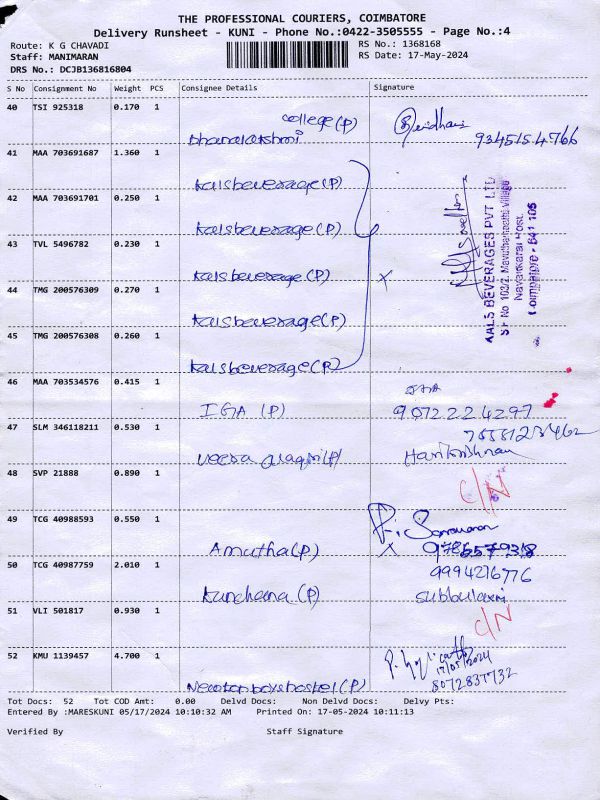 THE PROFESSIONAL COURIERS, COIMBATORE
Delivery Runsheet - KUNI - Phone No.:0422-3505555 - Page No.:4
Route: K G CHAVADI RS No.: 1368168
Staff: MANIMARAN RS Date: 17-May-2024
DRS No.: DCJB136816804
S No Consignment No Weight PCS Consignee Details Signature
40 TSI 925318 0.170 1
college(P)
dhanalakshmi 9345154766
41 MAA 703691687 1.360 1
kalsbeverage(P)
42 MAA 703691701 0.250 1
kalsbeverage(P)
43 TVL 5496782 0.230 1
kalsbeverage(P) X
44 TMG 200576309 0.270 1
kalsbeverage(P)
45 TMG 200576308 0.260 1
kalsbeverage(P)
KALS BEVERAGES PVT LTD
SF No 103/2, Mavuthampathi Village
Navakkarai Post,
Coimbatore - 641 105
46 MAA 703534576 0.415 1
IGA (P) 9072224297
47 SLM 346118211 0.530 1
Harikrishnan
48 SVP 21888 0.890 1
C/N
49 TCG 40988593 0.550 1
Amutha(P) X
50 TCG 40987759 2.010 1
9994216776
kunchana(P) subbulaxmi
51 VLI 501817 0.930 1
C/N
52 KMU 1139457 4.700 1
17/05/2024
newton boys hostel(P) 8072837732
Tot Docs: 52 Tot COD Amt: 0.00 Delvd Docs: Non Delvd Docs: Delvy Pts:
Entered By :MARESKUNI 05/17/2024 10:10:32 AM Printed On: 17-05-2024 10:11:13
Verified By Staff Signature